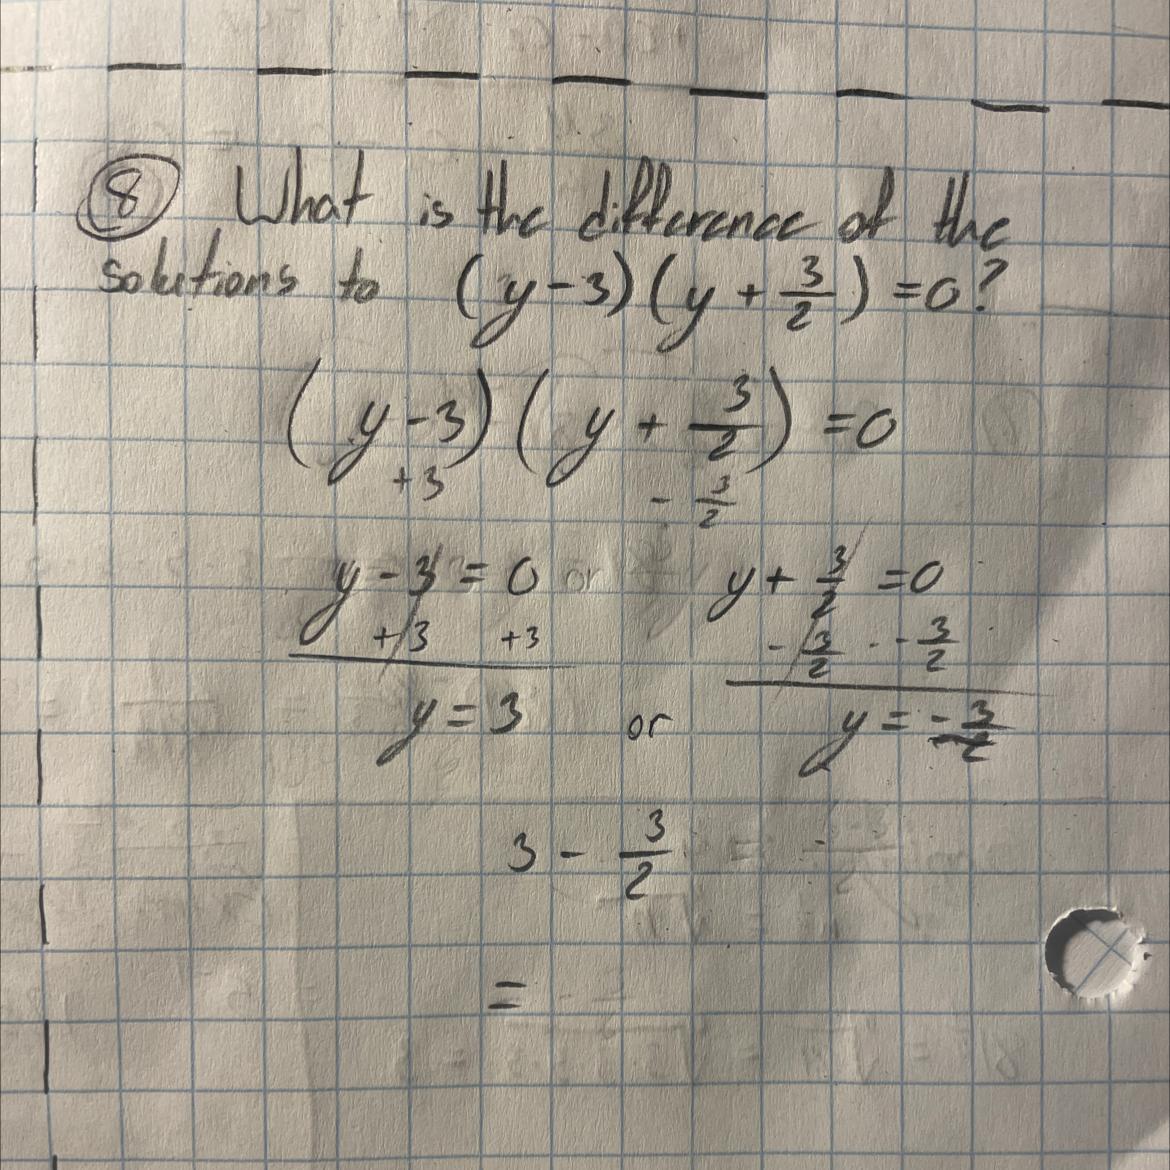 8 What is the difference of the
solutions to (y-3)(y + 3/2) = 0?
(y-3)(y + 3/2) = 0
+3 - 3/2
y - 3 = 0 or y + 3/2 = 0
+3 +3 - 3/2 - 3/2
y = 3 or y = -3/2
3 - 3/2
=